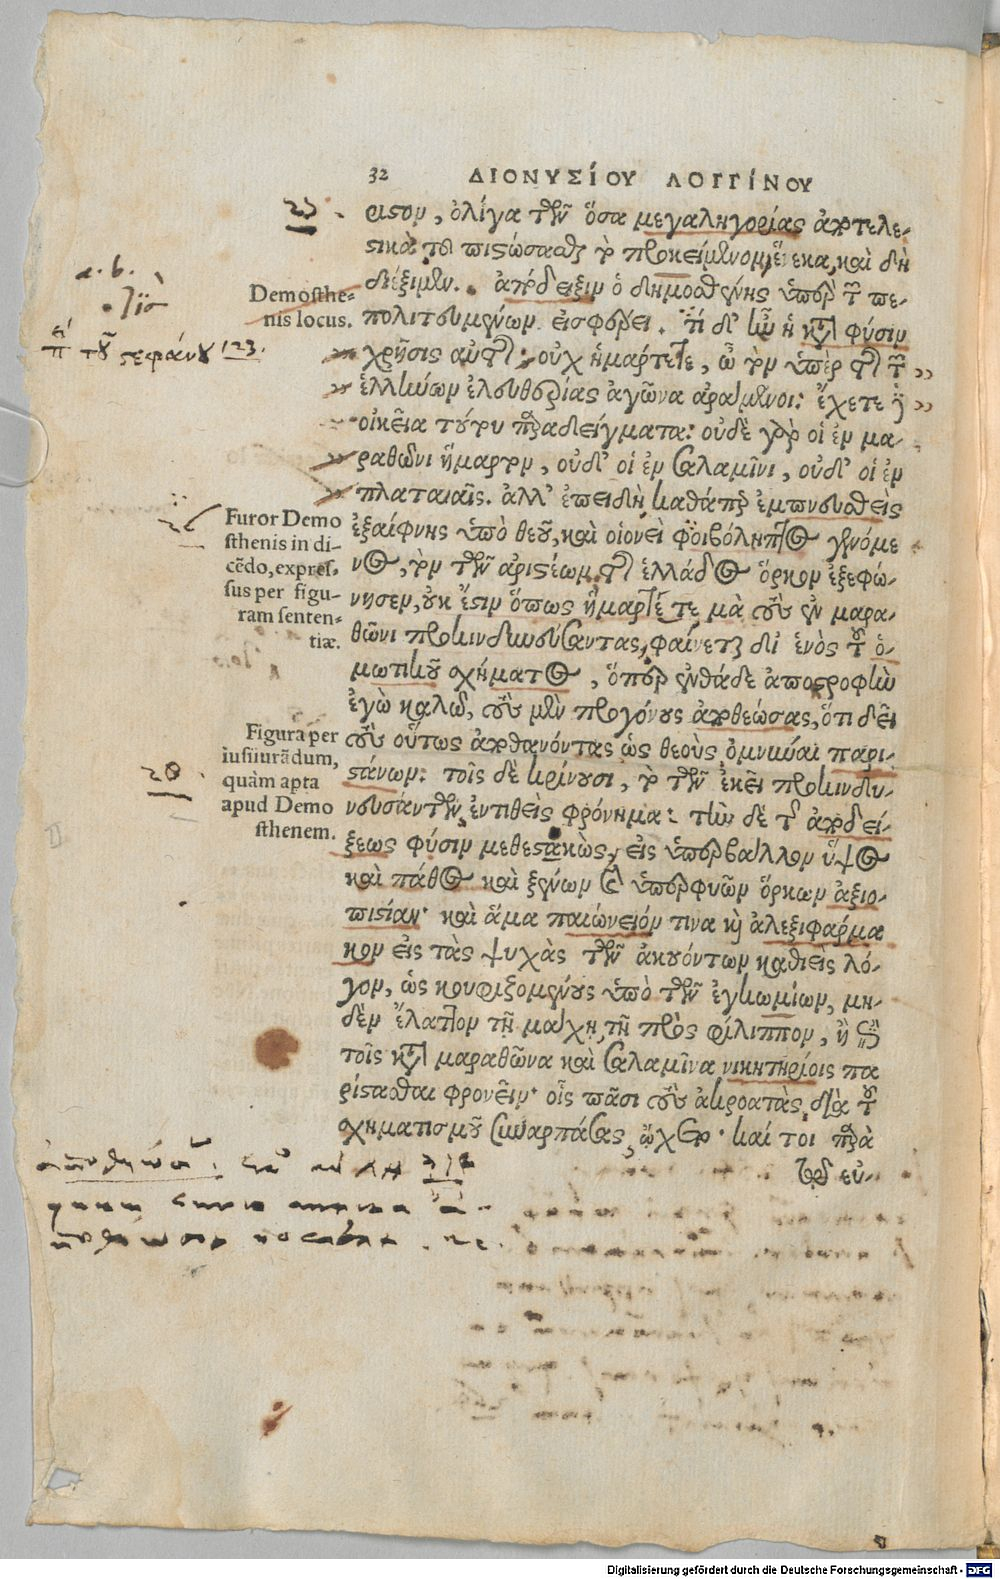 32 ΔΙΟΝΥΣΊΟΥ ΛΟΓΓΊΝΟΥ
ριϛον, ὀλίγα τῶν ὅσα μεγαληγορίας ἀποτελε-
ϛικὰ τοῦ πιϛώσασθαι τὸ προκείμενον ἕνεκα, καὶ δὴ
διέξιμεν. ἀπόδειξιν ὁ δημοσθένης ὑπὲρ τῶν πε-
πολιτευμένων εἰσφέρει. τί δ' ἦν ἡ κατὰ φύσιν
χρῆσις αὐτῆς; οὐχ ἡμάρτετε, ὦ τὸν ὑπὲρ τῆς τῶν
ἑλλήνων ἐλευθερίας ἀγῶνα ἀράμενοι: ἔχετε δὲ
οἰκεῖα τούτου παραδείγματα: οὐδὲ γὰρ οἱ ἐν μα-
ραθῶνι ἥμαρτον, οὐδ' οἱ ἐν σαλαμῖνι, οὐδ' οἱ ἐν
πλαταιαῖς. ἀλλ' ἐπειδὴ καθάπερ ἐμπνευσθεὶς
ἐξαίφνης ὑπὸ θεοῦ, καὶ οἱονεὶ φοιβόληπτος γενόμε
νος, τὸν τῶν ἀριϛέων τῆς ἑλλάδος ὅρκον ἐξεφώ-
νησεν, οὐκ ἔϛιν ὅπως ἡμάρτετε, μὰ τοὺς ἐν μαρα-
θῶνι προκινδυνεύσαντας, φαίνεται δι' ἑνὸς τοῦ ὀ-
μωτικοῦ σχήματος, ὅπερ ἐνθάδε ἀποϛροφὴν
ἐγὼ καλῶ, τοὺς μὲν προγόνους ἀποθεώσας, ὅτι δεῖ
τοὺς οὕτως ἀποθανόντας ὡς θεοὺς ὀμνύναι παρι-
ϛάνων: τοῖς δὲ κρίνουσι, τὸ τῶν ἐκεῖ προκινδυ-
νευσάντων, ἐντιθεὶς φρόνημα: τὴν δὲ τῆς ἀποδεί-
ξεως φύσιν μεθεϛακὼς, εἰς ὑπερβάλλον ὕψος
καὶ πάθος καὶ ξένων καὶ ὑπερφυῶν ὅρκων ἀξιο-
πιϛίαν· καὶ ἅμα παιώνειόν τινα καὶ ἀλεξιφάρμα
κον εἰς τὰς ψυχὰς τῶν ἀκουόντων καθιεὶς λό-
γον, ὡς κουφιζομένους ὑπὸ τῶν ἐγκωμίων, μη-
δὲν ἔλαττον τῇ μάχῃ, τῇ πρὸς φίλιππον, ἢ ἐπὶ
τοῖς κατὰ μαραθῶνα καὶ σαλαμῖνα νικητηρίοις πα
ρίϛασθαι φρονεῖν· οἷς πᾶσι τοὺς ἀκροατὰς, διὰ τοῦ
σχηματισμοῦ συναρπάσας, ᾤχετο· καί τοι παρὰ
τῷ εὐ-
Demosthe-
nis locus.
Furor Demo
sthenis in di-
cẽdo, expres-
sus per figu-
ram senten-
tiæ.
Figura per
iusiiurãdum,
quàm apta
apud Demo
sthenem.
τοῦ ϛεφάνου 123.
Digitalisierung gefördert durch die Deutsche Forschungsgemeinschaft - DFG